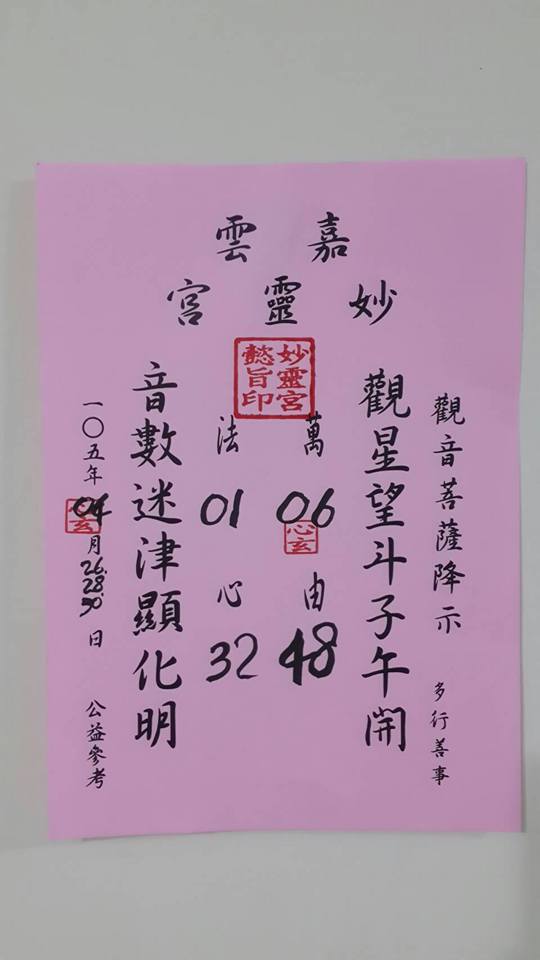 嘉雲
妙靈宮
妙靈宮
懿旨印
觀音菩薩降示 多行善事
觀星望斗子午開
萬 06 由 48
心玄
法 01 心 32
音數迷津顯化明
一〇五年04月26.28.30.日 公益參考